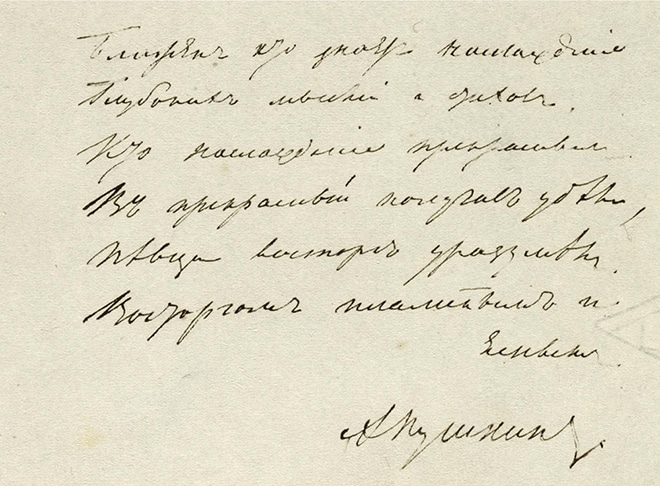 Блаженъ кто знаетъ наслажденіе
Глубокихъ мыслей и стиховъ,
Кто наслажденіе прекраснымъ
Въ прекрасный получилъ удѣлъ,
Пѣвца восторгъ уразумѣлъ
Восторгомъ пламеннымъ и
яснымъ
А Пушкинъ